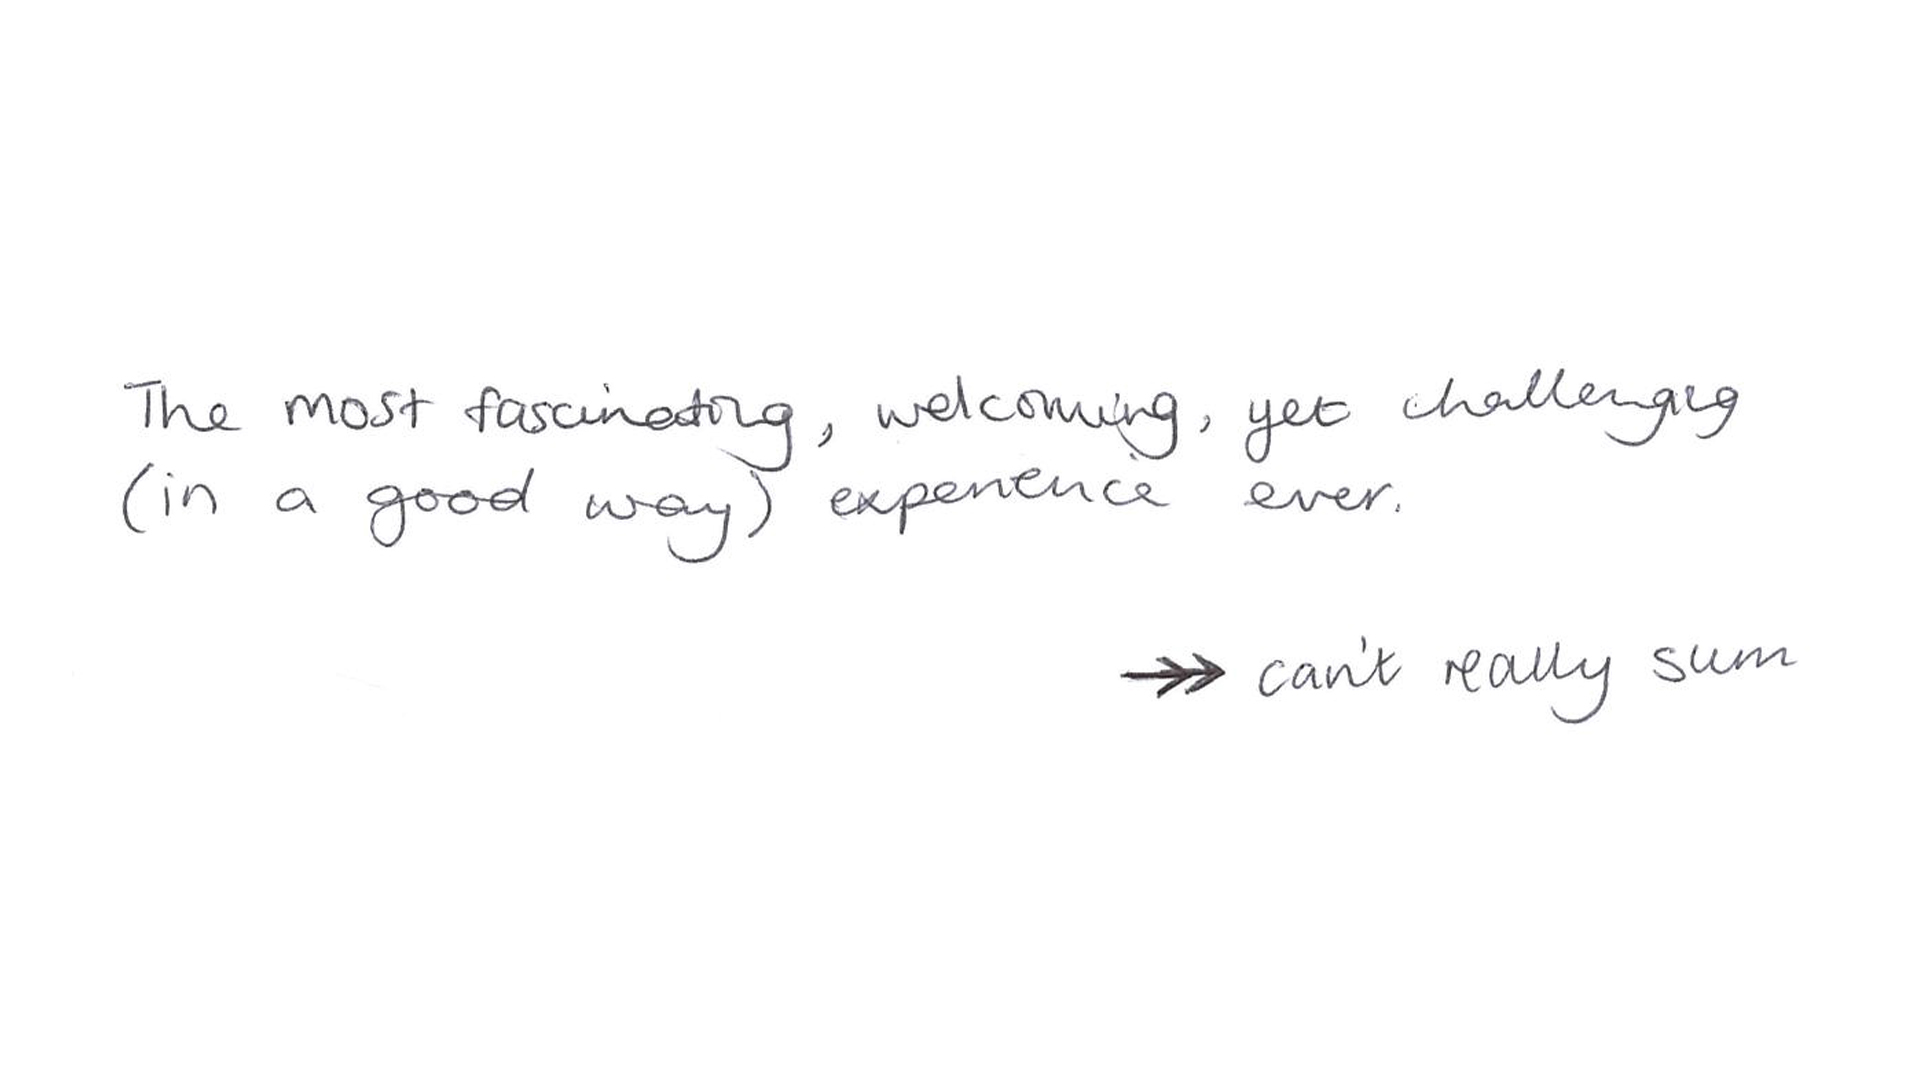 The most fascinating, welcoming, yet challenging
(in a good way) experience ever.
↠ can't really sum